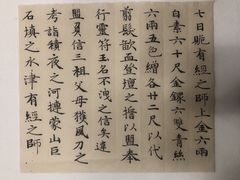 七日䞈有經之師上金六兩
白素六十尺金鐶六雙青絲
六兩五色繒各廿二尺以代
翦髮歃血登壇之誓以盟奉
行靈符玉名不洩之信矣違
盟負信三祖父母獲風刀之
考詣積夜之河摙蒙山巨
石填之水津有經之師